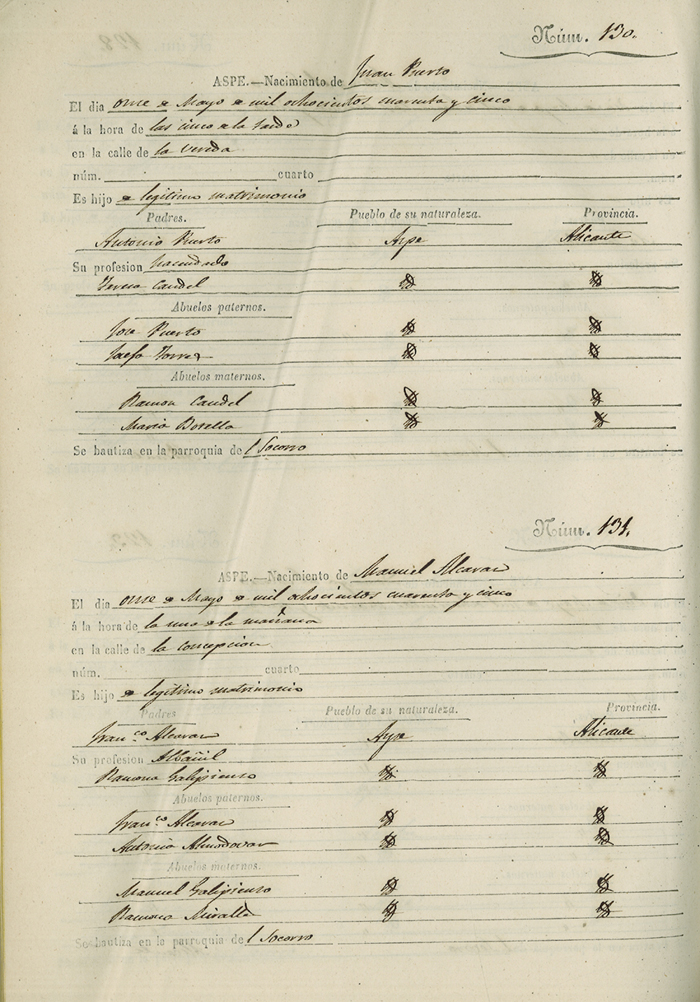 Núm. 130.
ASPE.—Nacimiento de Juan Puerto
El dia once de Mayo de mil ochocientos cuarenta y cinco
á la hora de las cinco de la tarde
en la calle de la Vereda
núm. cuarto
Es hijo de legitimo matrimonio
Padres. Pueblo de su naturaleza. Provincia.
Antonio Puerto Aspe Alicante
Su profesion hacendado
Teresa Caudel
Abuelos paternos.
Jose Puerto
Torres
Abuelos maternos.
Ramon Caudel
Maria Botella
Se bautiza en la parroquia del Socorro
Núm. 131.
ASPE.—Nacimiento de Manuel Alcaraz
El dia once de Mayo de mil ochocientos cuarenta y cinco
á la hora de la una de la mañana
en la calle de la concepcion
núm. cuarto
Es hijo de legitimo matrimonio
Padres Pueblo de su naturaleza. Provincia.
Fran.co Alcaraz Aspe Alicante
Su profesion Albañil
Ramona Galipienso
Abuelos paternos.
Fran.co Alcaraz
Antonia Almodovar
Abuelos maternos.
Manuel Galipienso
Ramona Miralles
Se bautiza en la parroquia del Socorro